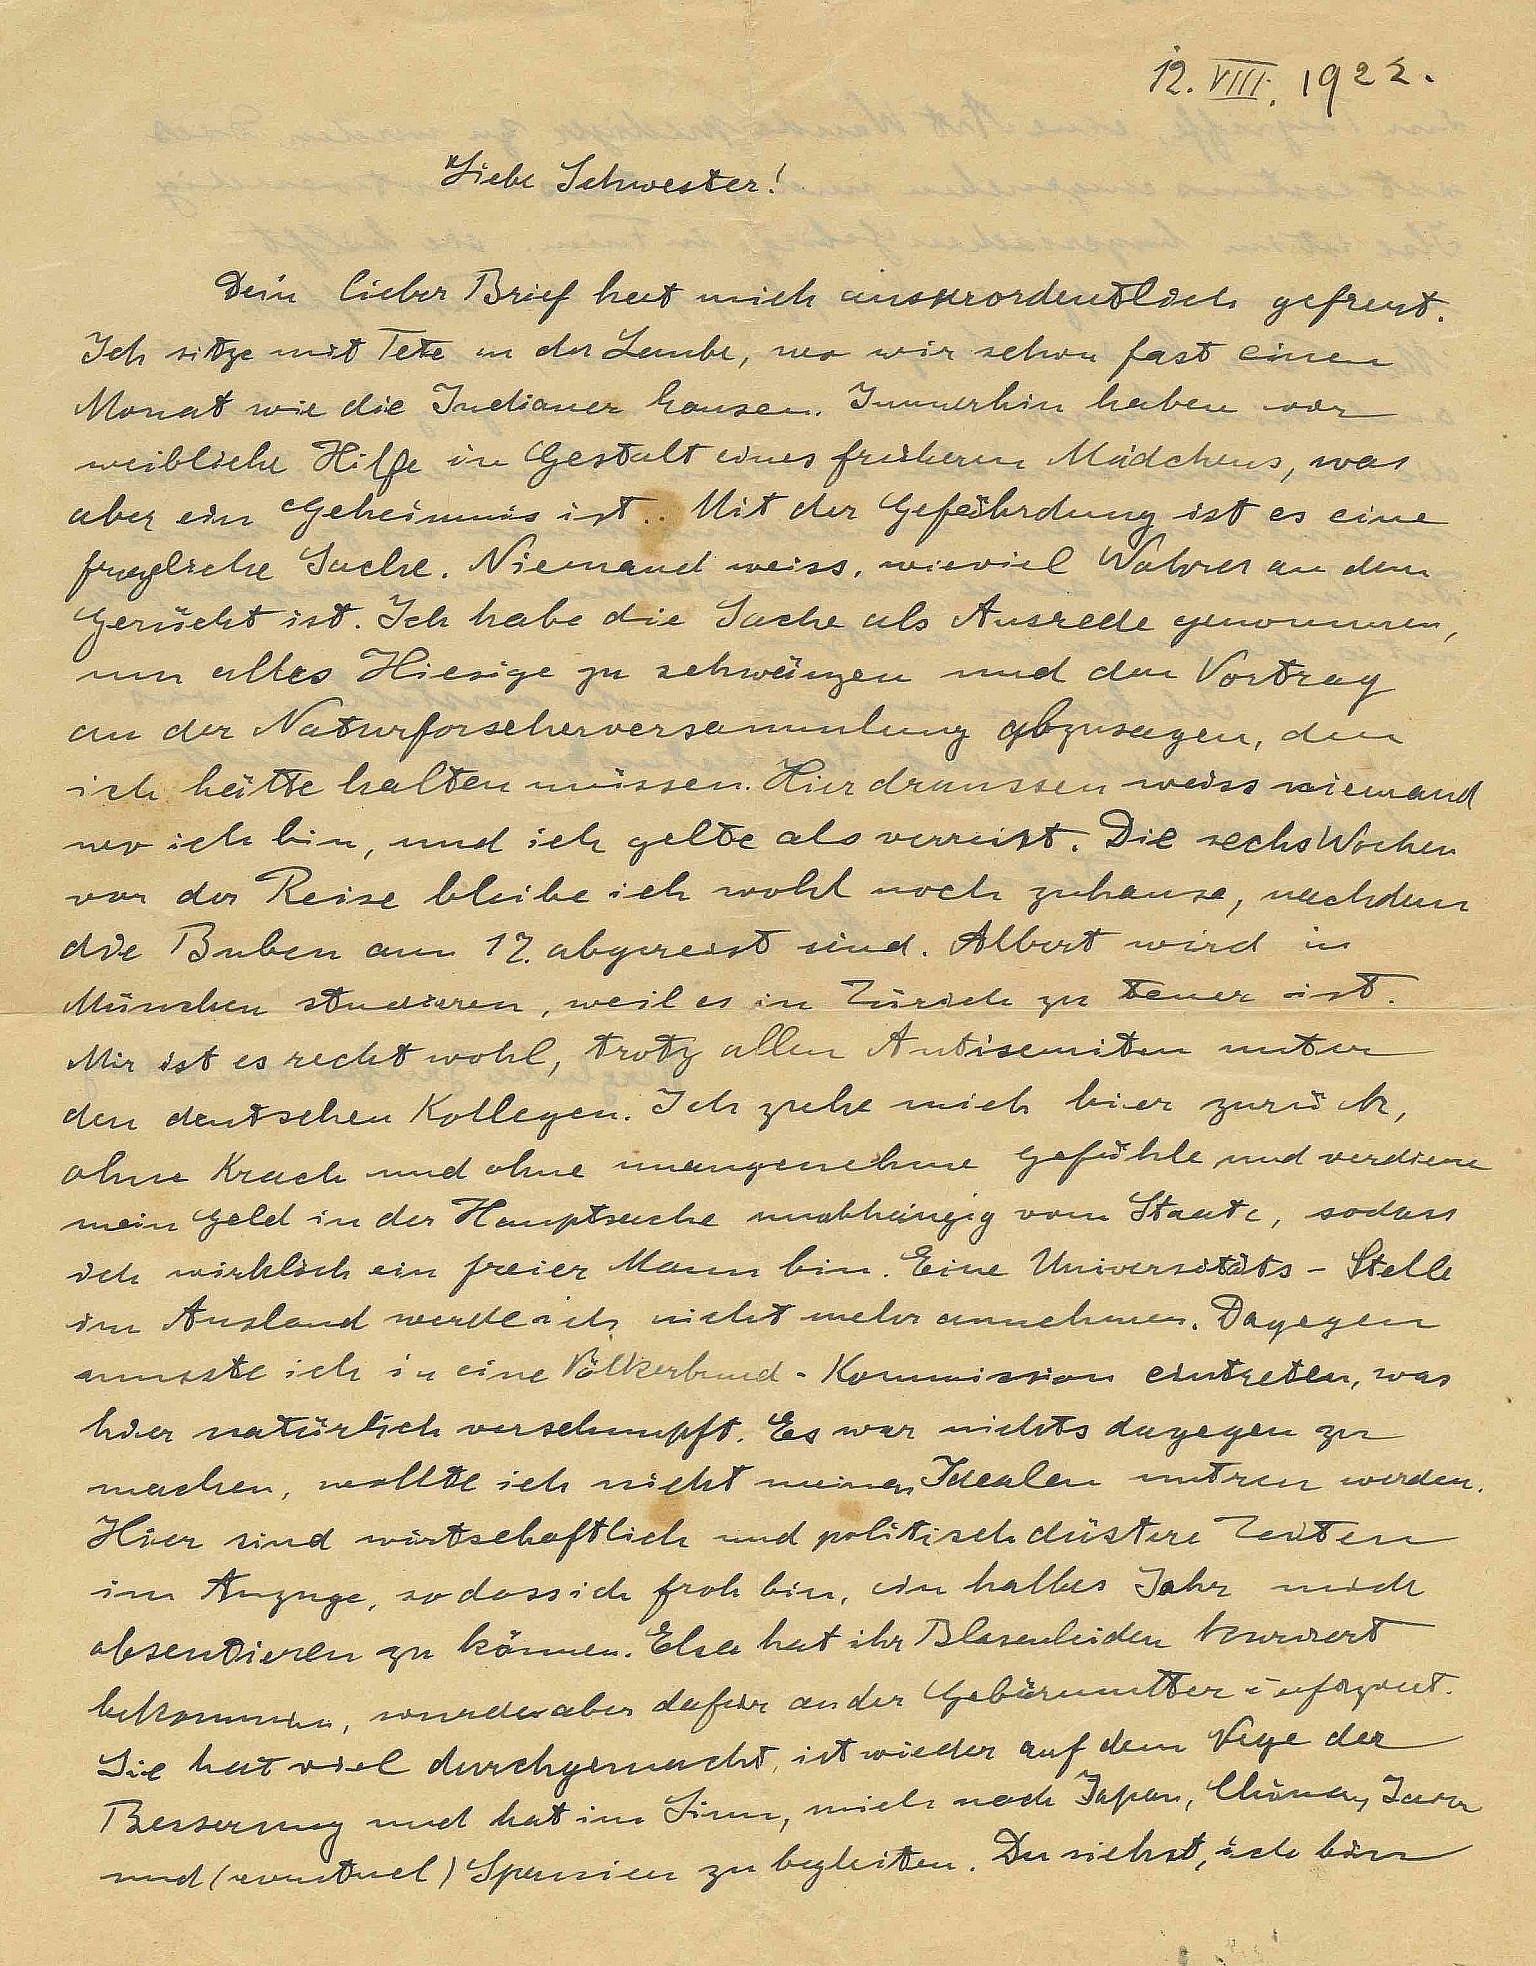 12. VIII. 1922.
Liebe Schwester!
Dein lieber Brief hat mich ausserordentlich gefreut.
Ich sitze mit Tete in der Laube, wo wir schon fast einen
Monat wie die Indianer hausen. Immerhin haben wir
weibliche Hilfe in Gestalt eines früheren Mädchens, was
aber ein Geheimnis ist. Mit der Gefährdung ist es eine
fragliche Sache. Niemand weiss, wieviel Wahres an dem
Gerücht ist. Ich habe die Sache als Ausrede genommen,
um alles Hiesige zu schwänzen und den Vortrag
an der Naturforscherversammlung abzusagen, den
ich hätte halten müssen. Hier draussen weiss niemand
wo ich bin, und ich gelte als verreist. Die sechs Wochen
vor der Reise bleibe ich wohl noch zuhause, nachdem
die Buben am 17. abgereist sind. Albert wird in
München studieren, weil es in Zürich zu teuer ist.
Mir ist es recht wohl, trotz allen Antisemiten unter
den deutschen Kollegen. Ich ziehe mich hier zurück,
ohne Krach und ohne unangenehme Gefühle und verdiene
mein Geld in der Hauptsache unabhängig vom Staate, sodass
ich wirklich ein freier Mann bin. Eine Universitäts-Stelle
im Ausland werde ich nicht mehr annehmen. Dagegen
musste ich in eine Völkerbund-Kommission eintreten, was
hier natürlich verschnupft. Es war nichts dagegen zu
machen, wollte ich nicht meinen Idealen untreu werden.
Hier sind wirtschaftlich und politisch düstere Zeiten
im Anzuge, sodass ich froh bin, ein halbes Jahr mich
absentieren zu können. Elsa hat ihr Blasenleiden kuriert
bekommen, wurde aber dafür an der Gebärmutter infiziert.
Sie hat viel durchgemacht, ist wieder auf dem Wege der
Besserung und hat im Sinn, mich nach Japan, China, Java
und (eventuel) Spanien zu begleiten. Du siehst, ich bin